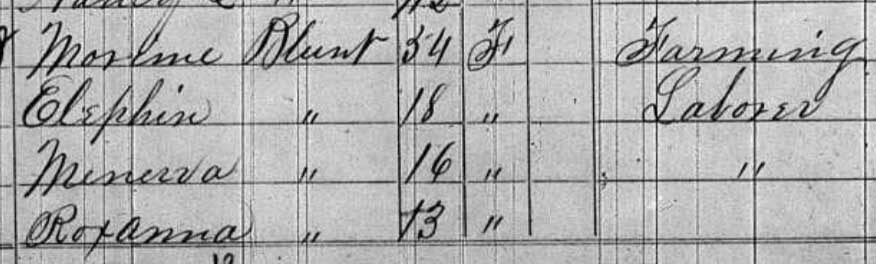 Morime Blunt 54 F Farming
Elephin " 18 " Laborer
Minerva " 16 " "
Roxanna " 13 "